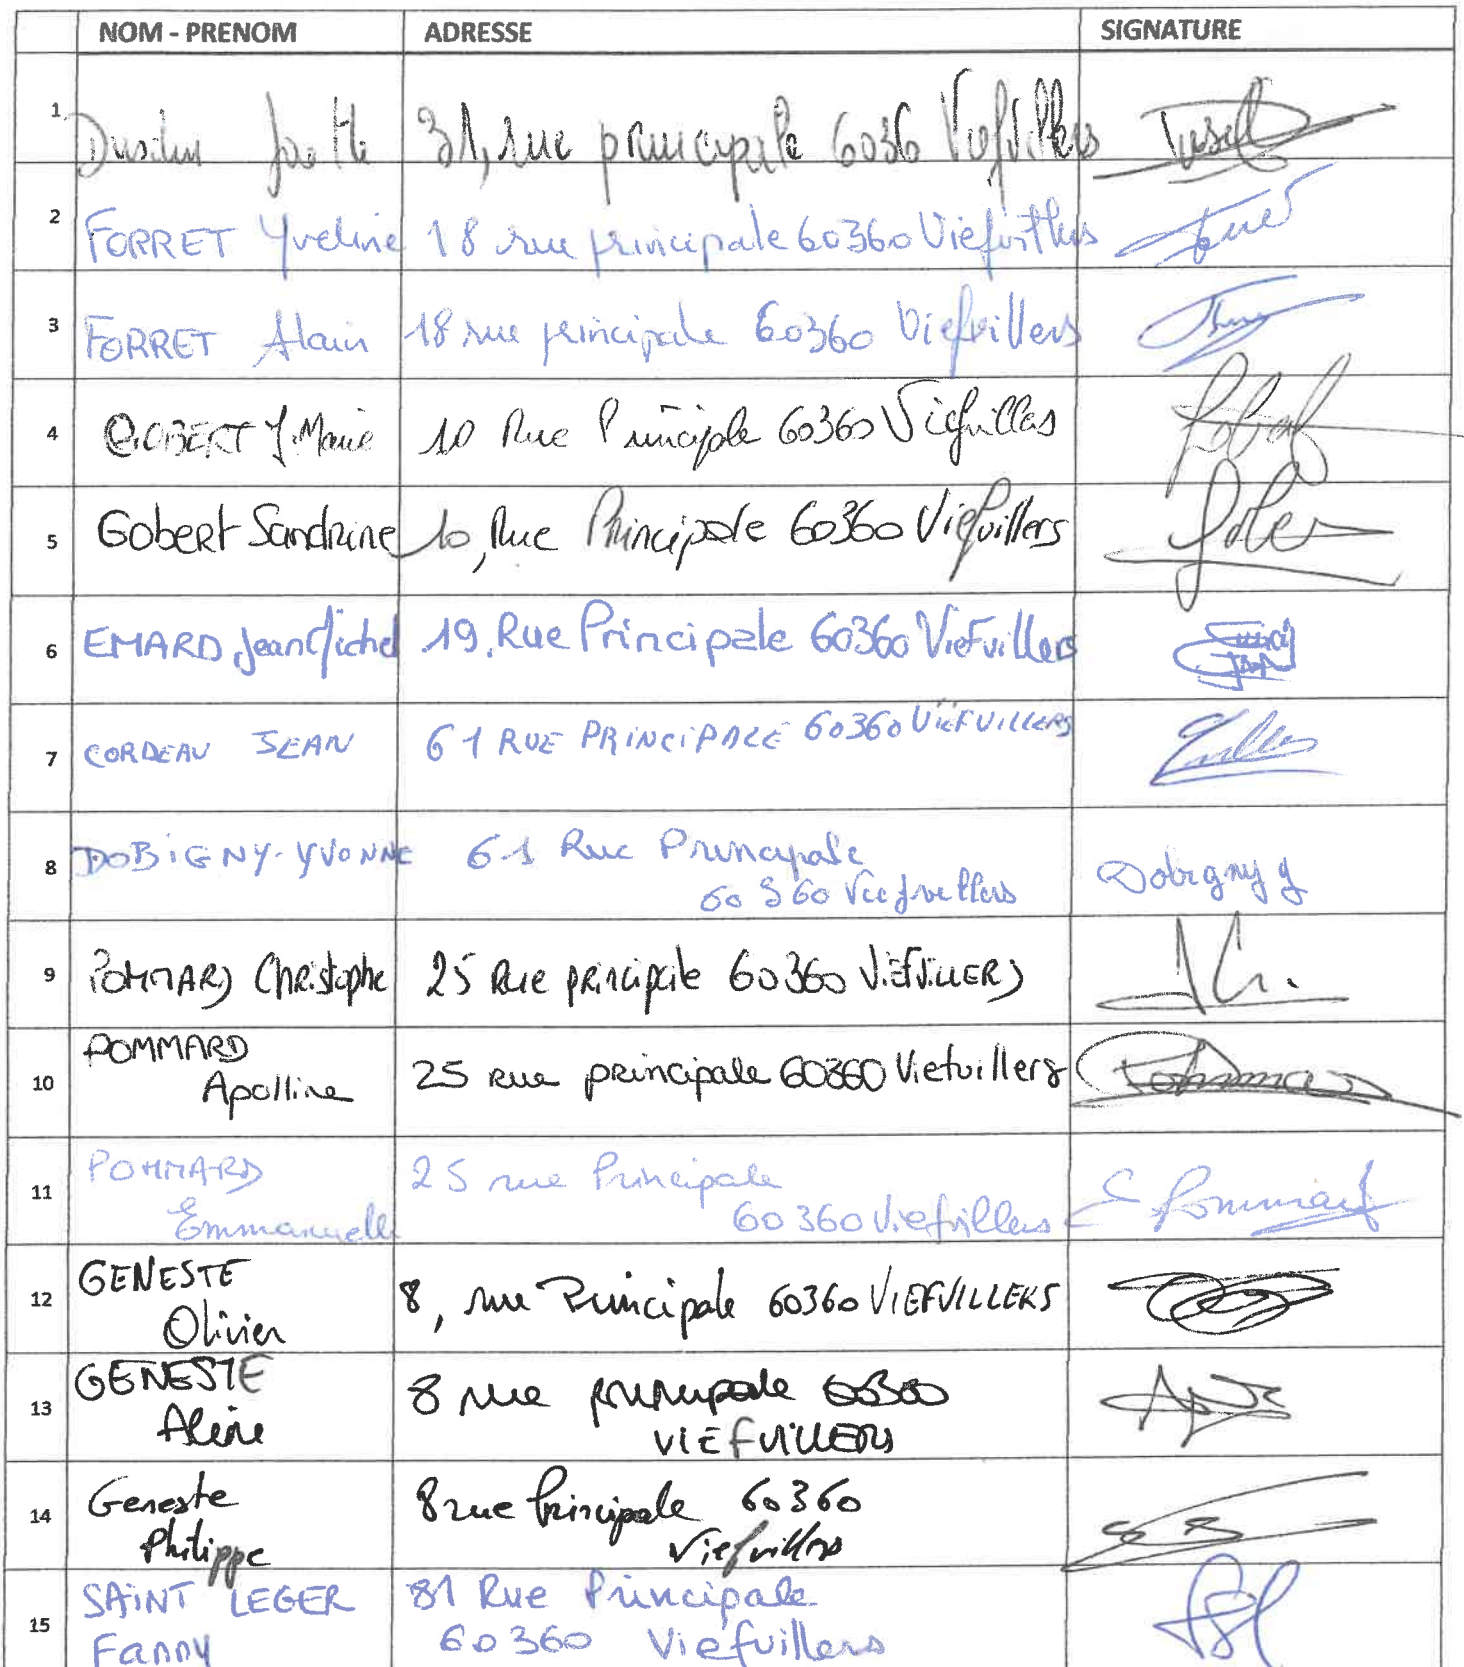 NOM - PRENOM ADRESSE SIGNATURE
1 31, rue principale 6036 Viefvillers
2 FORRET Yveline 18 rue principale 60360 Viefvillers
3 FORRET Alain 18 rue principale 60360 Viefvillers
4 GOBERT J.Marie 10 Rue Principale 60360 Viefvillers
5 Gobert Sandrine 10, Rue Principale 60360 Viefvillers
6 EMARD Jean Michel 19, Rue Principale 60360 Viefvillers
7 CORDEAU JEAN 61 RUE PRINCIPALE 60360 VIEFVILLERS
8 DOBIGNY-YVONNE 61 Rue Principale
60360 Viefvillers Dobigny y
9 POMMARD Christophe 25 Rue principale 60360 VIEFVILLERS
10 POMMARD
Apolline 25 rue principale 60360 Viefvillers
11 POMMARD 25 rue Principale
Emmanuelle 60360 Viefvillers E Pommard
12 GENESTE
Olivier 8, rue Principale 60360 VIEFVILLERS
13 GENESTE 8 rue principale 60360
Aline VIEFVILLERS
14 Geneste 8 rue Principale 60360
Philippe Viefvillers
15 SAINT LEGER 81 Rue Principale
Fanny 60360 Viefvillers